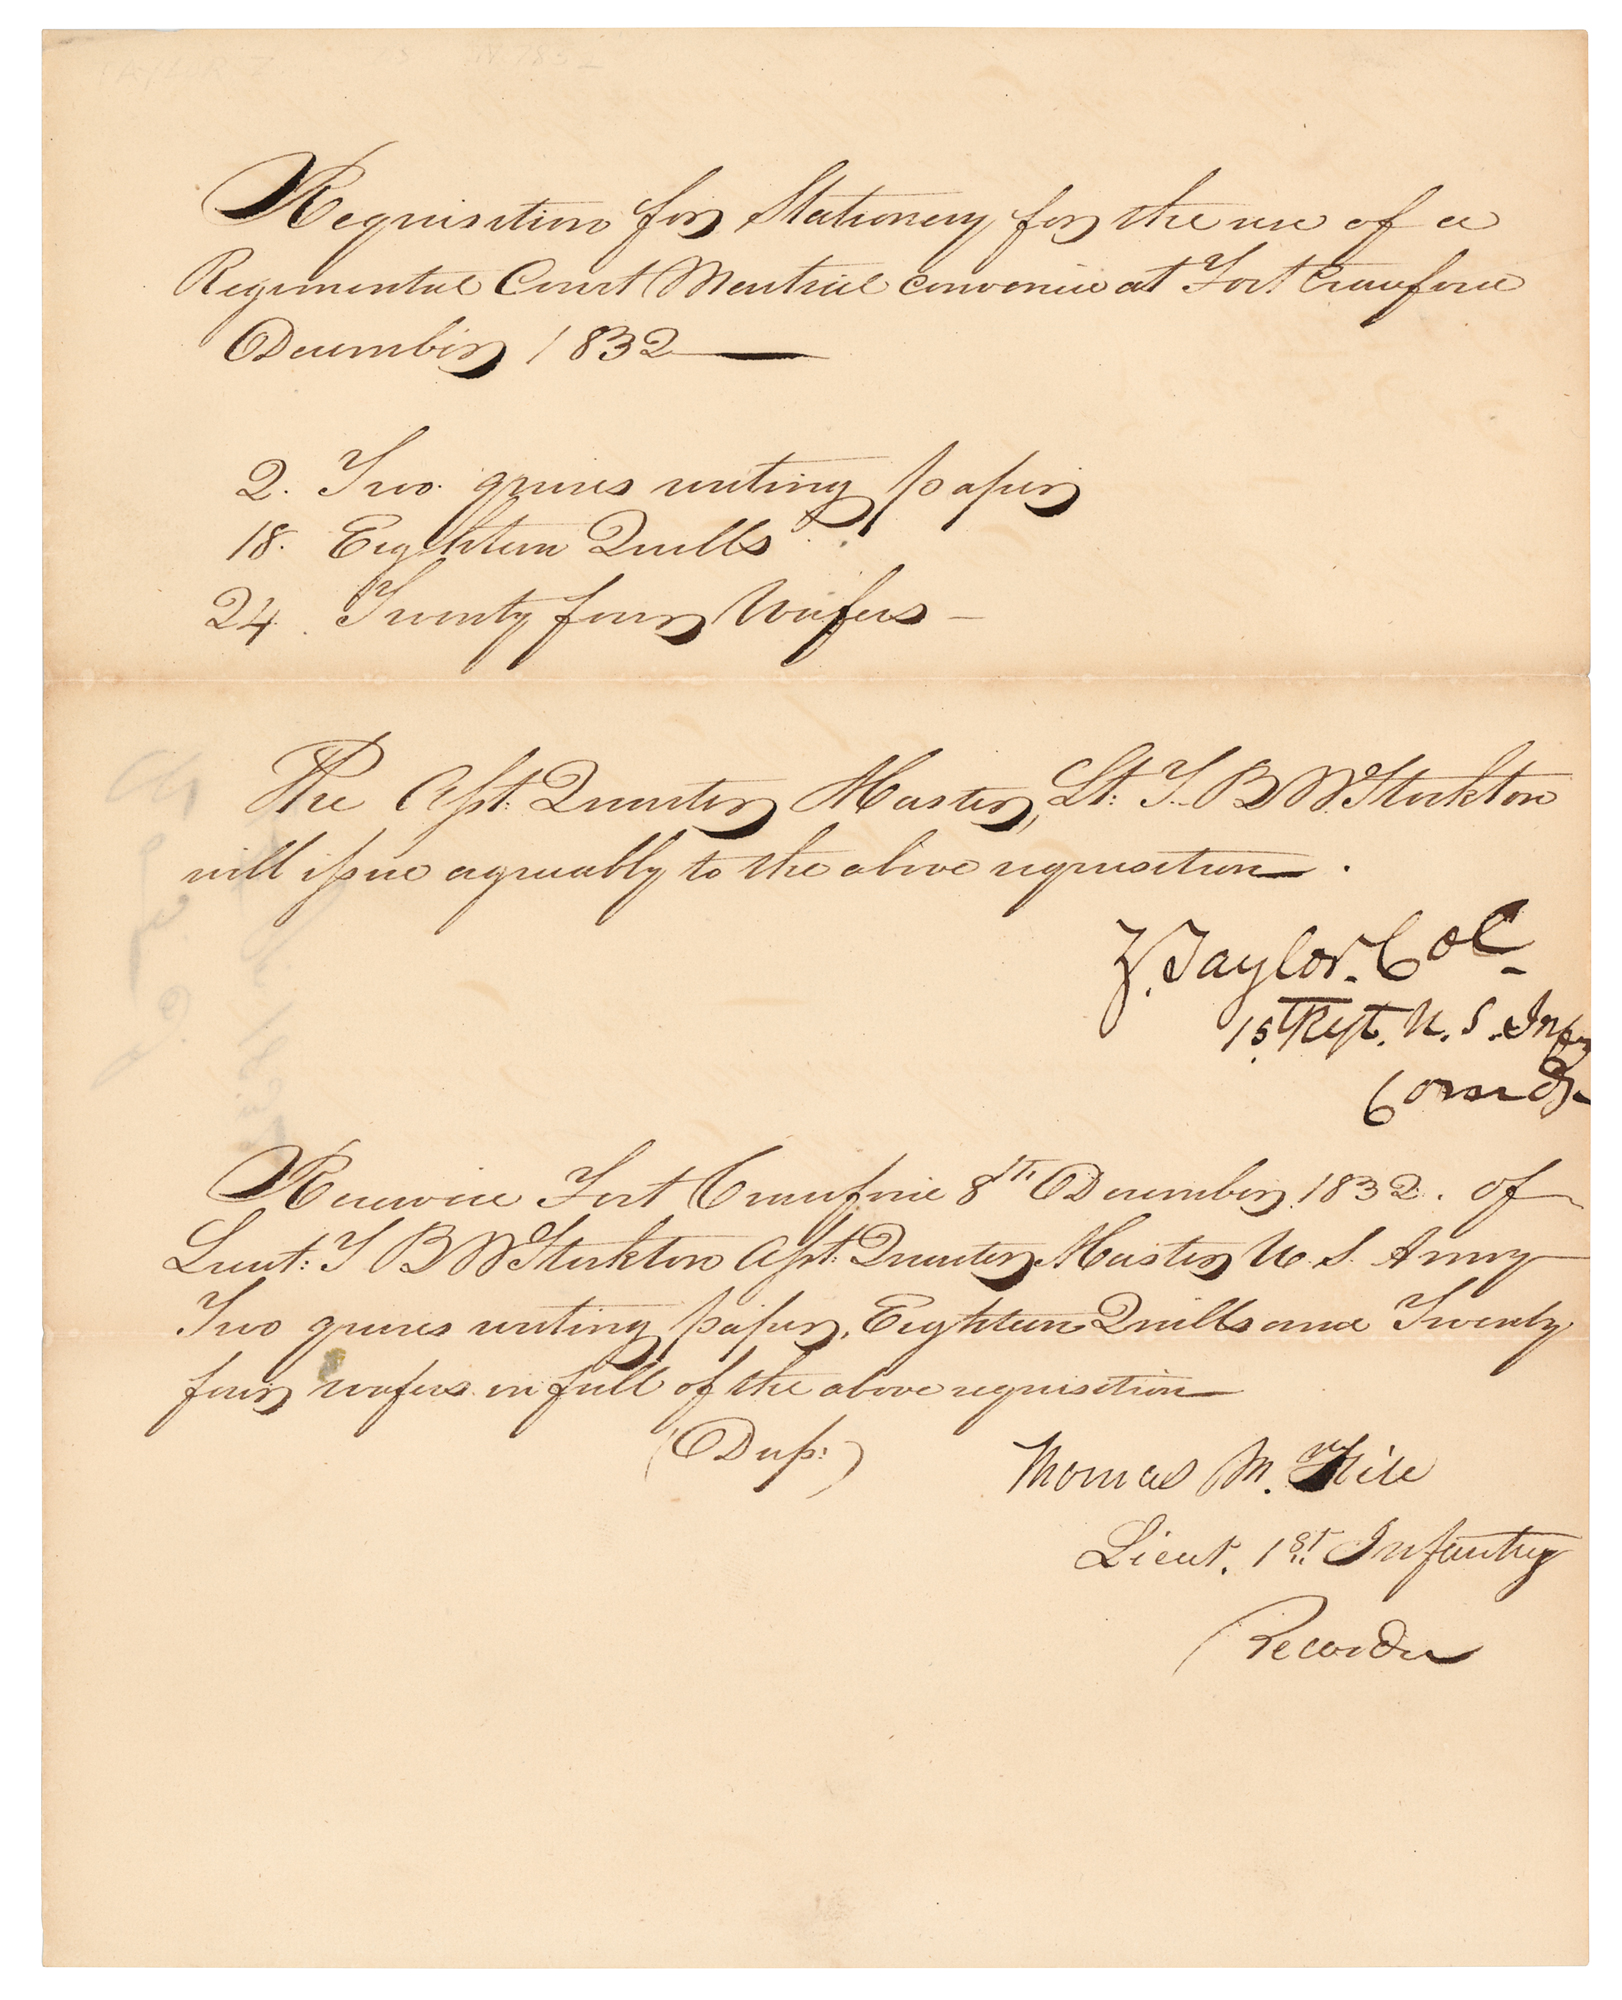 Requisition for Stationery for the use of a
Regimental Court Martial convened at Fort Crawford
December 1832
2. Two quires writing paper
18. Eighteen Quills
24. Twenty four Wafers
The Asst. Quarter Master, Lt. T. B W. Stockton
will issue agreeably to the above requisition.
Z. Taylor. Col.
1st Regt. U. S. Infy
Comdg.
Received Fort Crawford 8th December 1832. of
Lieut: T B W Stockton Asst: Quarter Master U. S. Army
Two quires writing paper, Eighteen Quills and Twenty
four wafers in full of the above requisition
(Dup:)
Thomas M. Hill
Lieut. 1st Infantry
Recorder